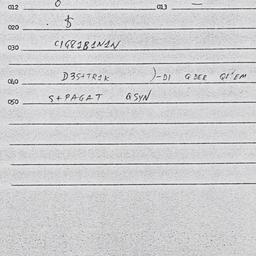 012 0 013 —
020 $
030 C1G81B1N1N
040 D3S+TR1K )-D1 GDEE GE'EM
050 S+PAGAT GSYN